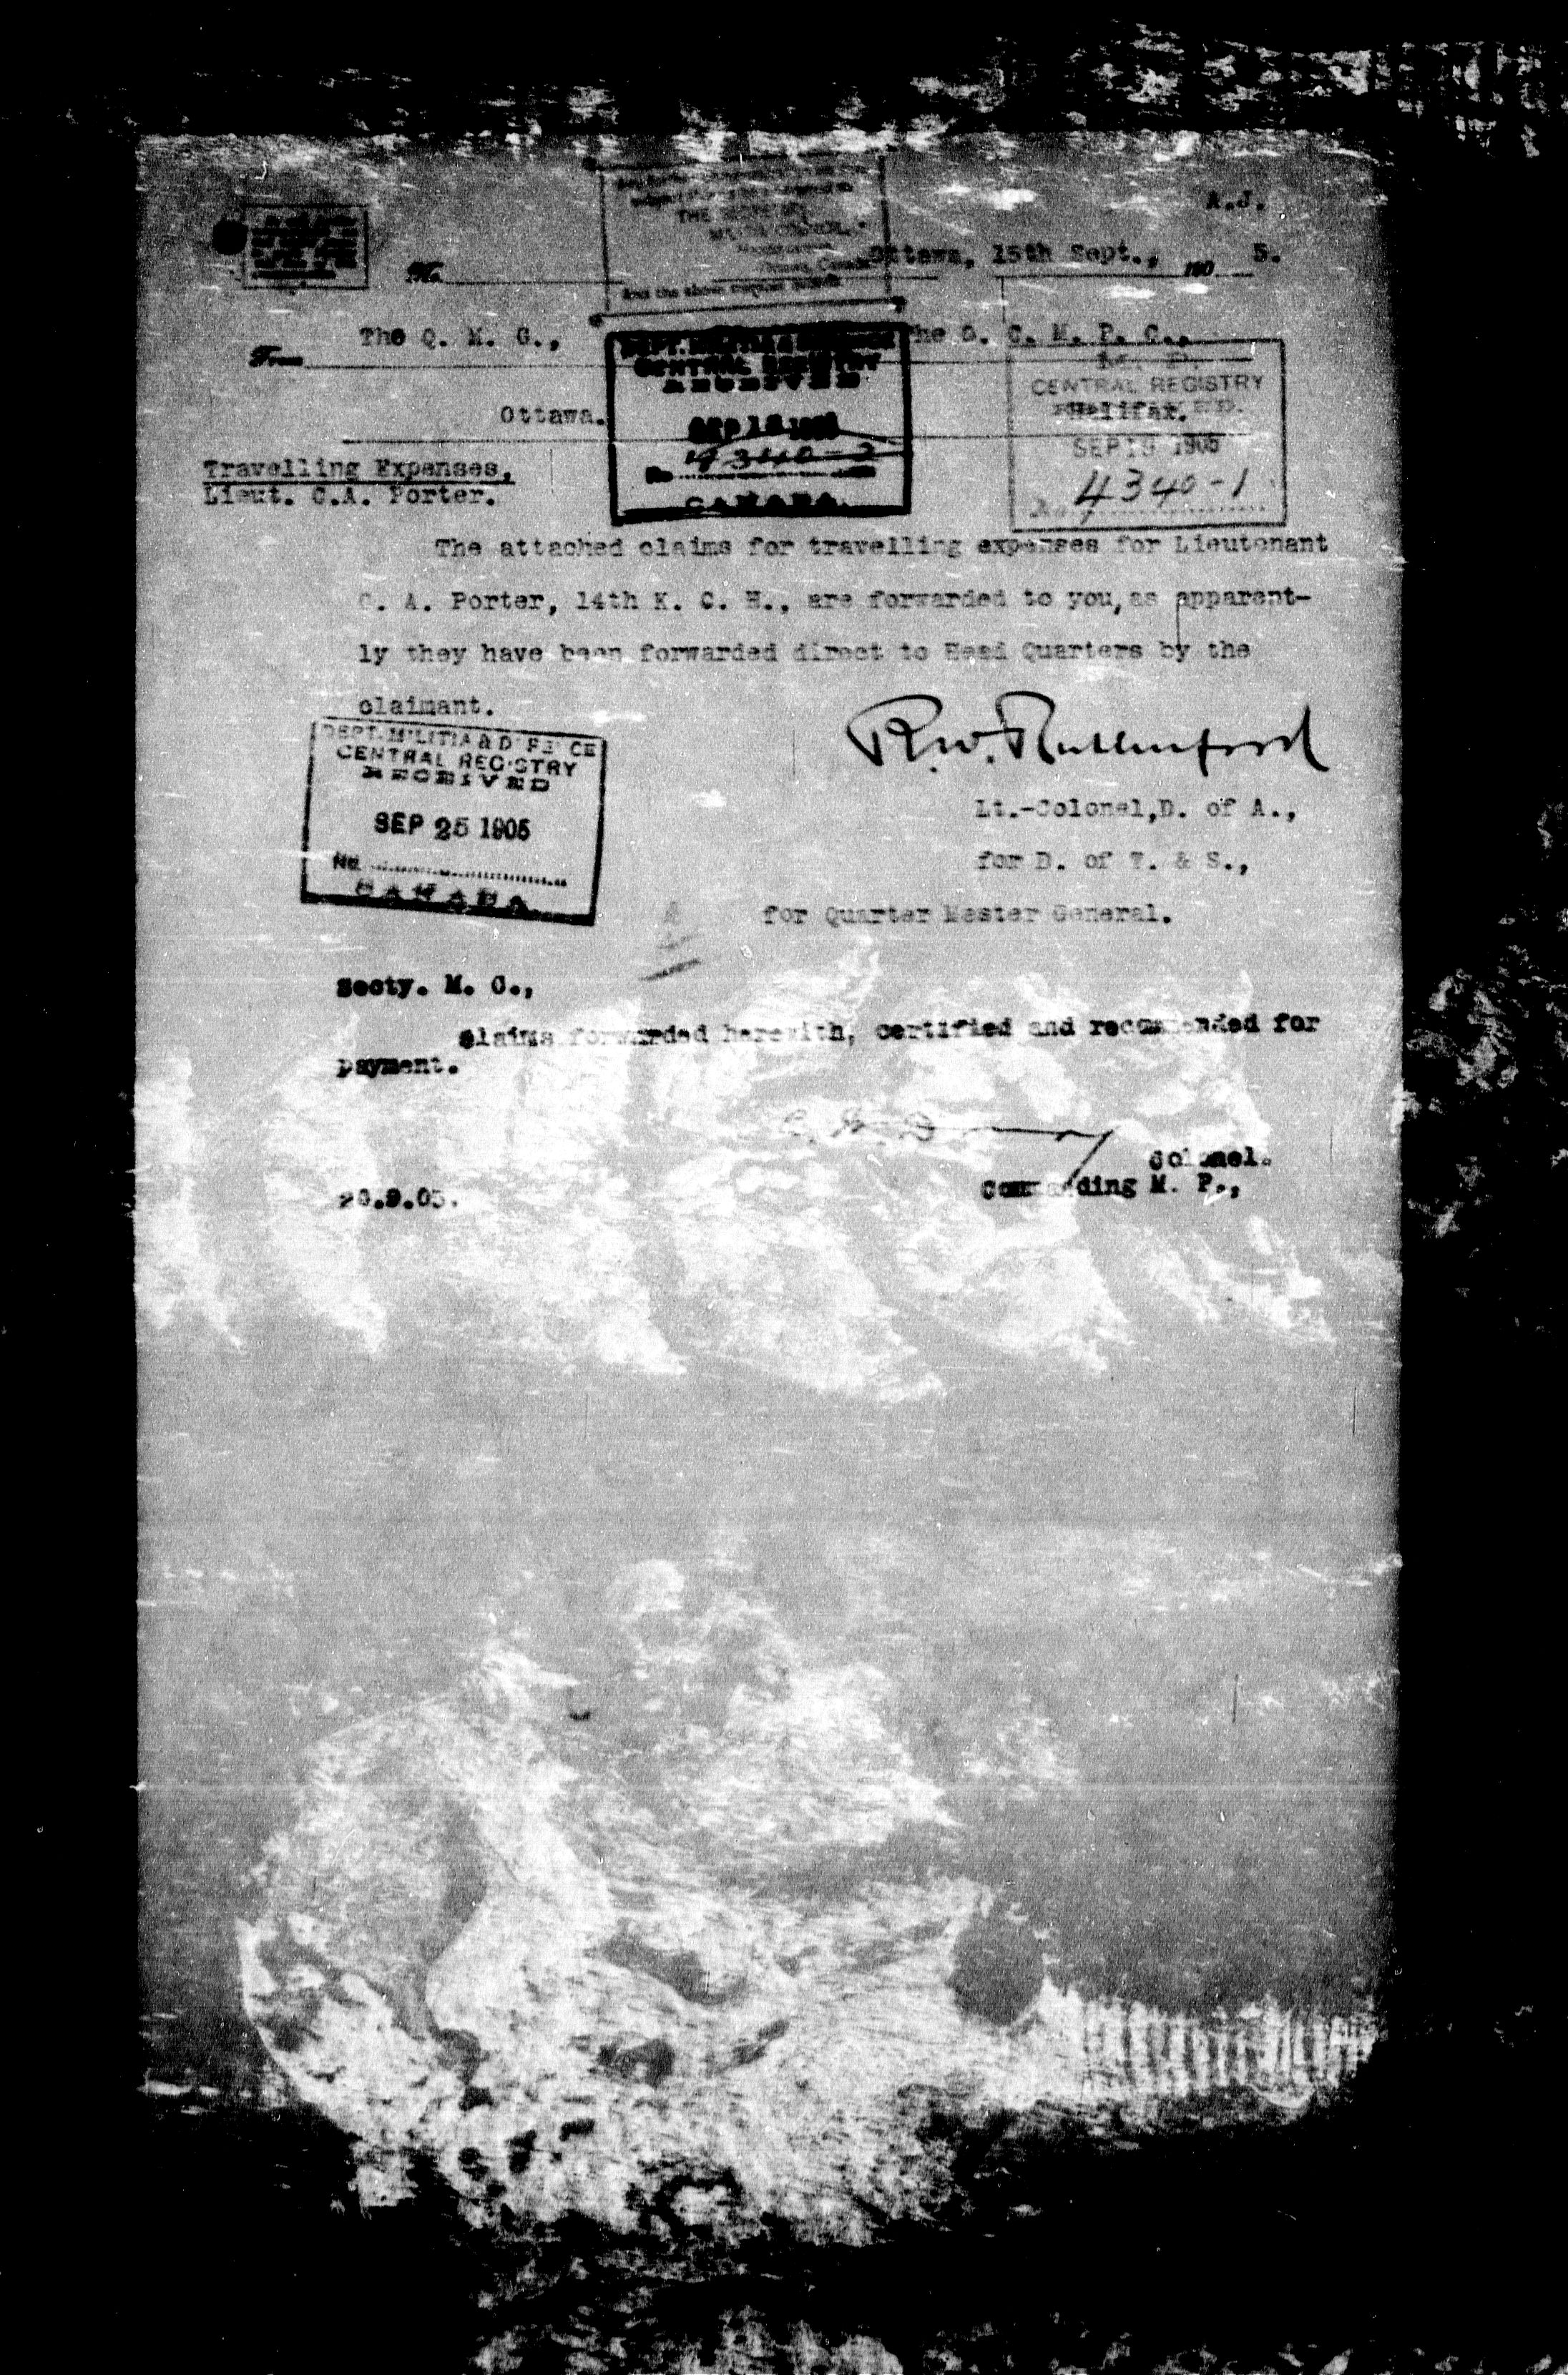 A.J.
THE SECRETARY,
No. Ottawa, 15th Sept., 190 5.
and the above
From The Q. M. G., The O. C. M. P. C.,
Ottawa. Halifax.
DEPT. MILITIA & DEFENCE
CENTRAL REGISTRY
RECEIVED
SEP 1905
No 4340-2
CANADA.
M. P.
CENTRAL REGISTRY
SEP 19 1905
No. 4340-1
Travelling Expenses,
Lieut. C.A. Porter.
The attached claims for travelling expenses for Lieutenant
C. A. Porter, 14th K. C. H., are forwarded to you, as apparent-
ly they have been forwarded direct to Head Quarters by the
claimant.
R.W. Rutherford
Lt.-Colonel, D. of A.,
for D. of T. & S.,
for Quarter Master General.
DEPT. MILITIA & DEFENCE
CENTRAL REGISTRY
RECEIVED
SEP 25 1905
No.
CANADA
Secty. M. C.,
Claims forwarded herewith, certified and recommended for
payment.
Colonel.
Commanding M. P.,
.9.05.